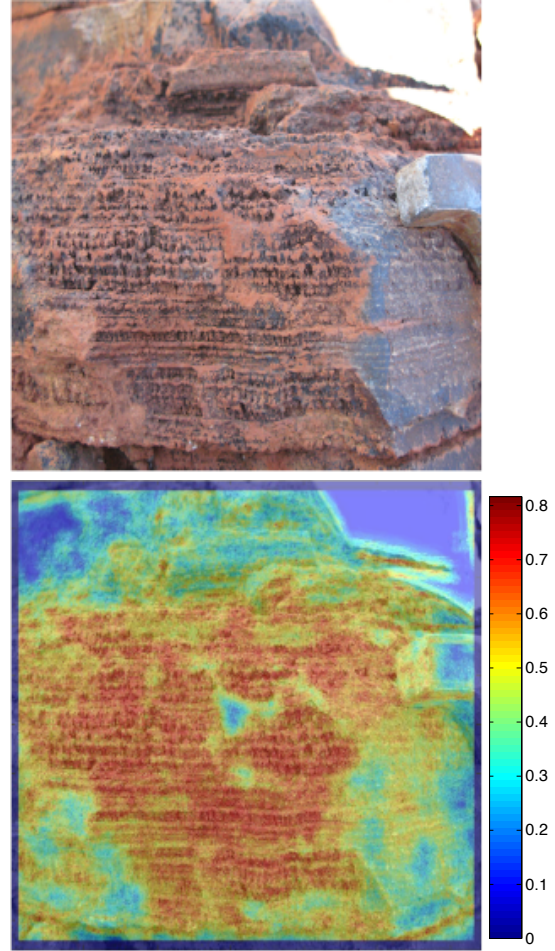 0.8
0.7
0.6
0.5
0.4
0.3
0.2
0.1
0